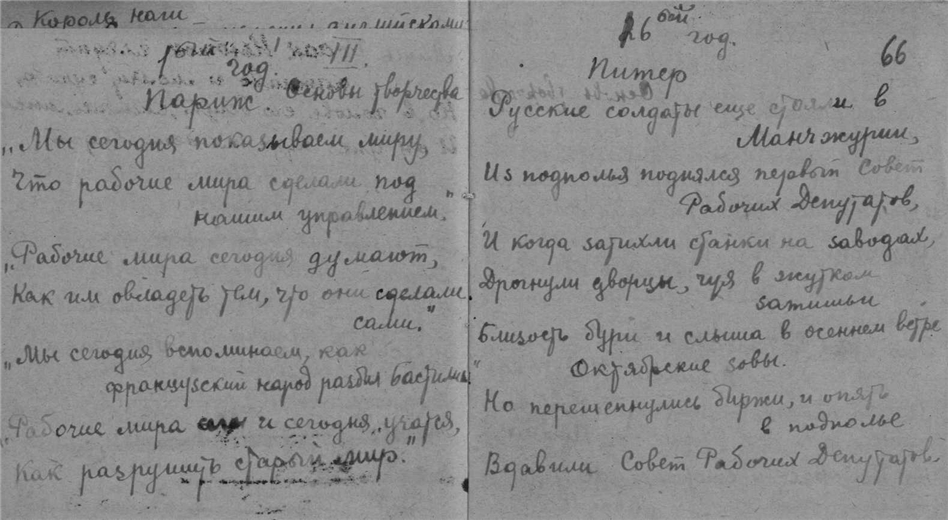 Король наш
английскому
1ый год. VIII.
Париж. Основы творчества
„Мы сегодня показываем миру,
Что рабочие мира сделали под
нашим управлением."
„Рабочие мира сегодня думают,
Как им овладеть тем, что они сделали
сами."
„Мы сегодня вспоминаем, как
французский народ разбил Бастилию"
„Рабочие мира и сегодня учатся,
Как разрушить старый мир."
66
ый год.
Питер
Русские солдаты еще стояли в
Манчжурии,
Из подполья поднялся первый Совет
Рабочих Депутатов,
И когда затихли станки на заводах,
Дрогнули дворцы, чуя в жутком
затишьи
Близость бури и слыша в осеннем ветре
Октябрские зовы.
Но перешепнулись биржи, и опять
в подполье
Вдавили Совет Рабочих Депутатов.